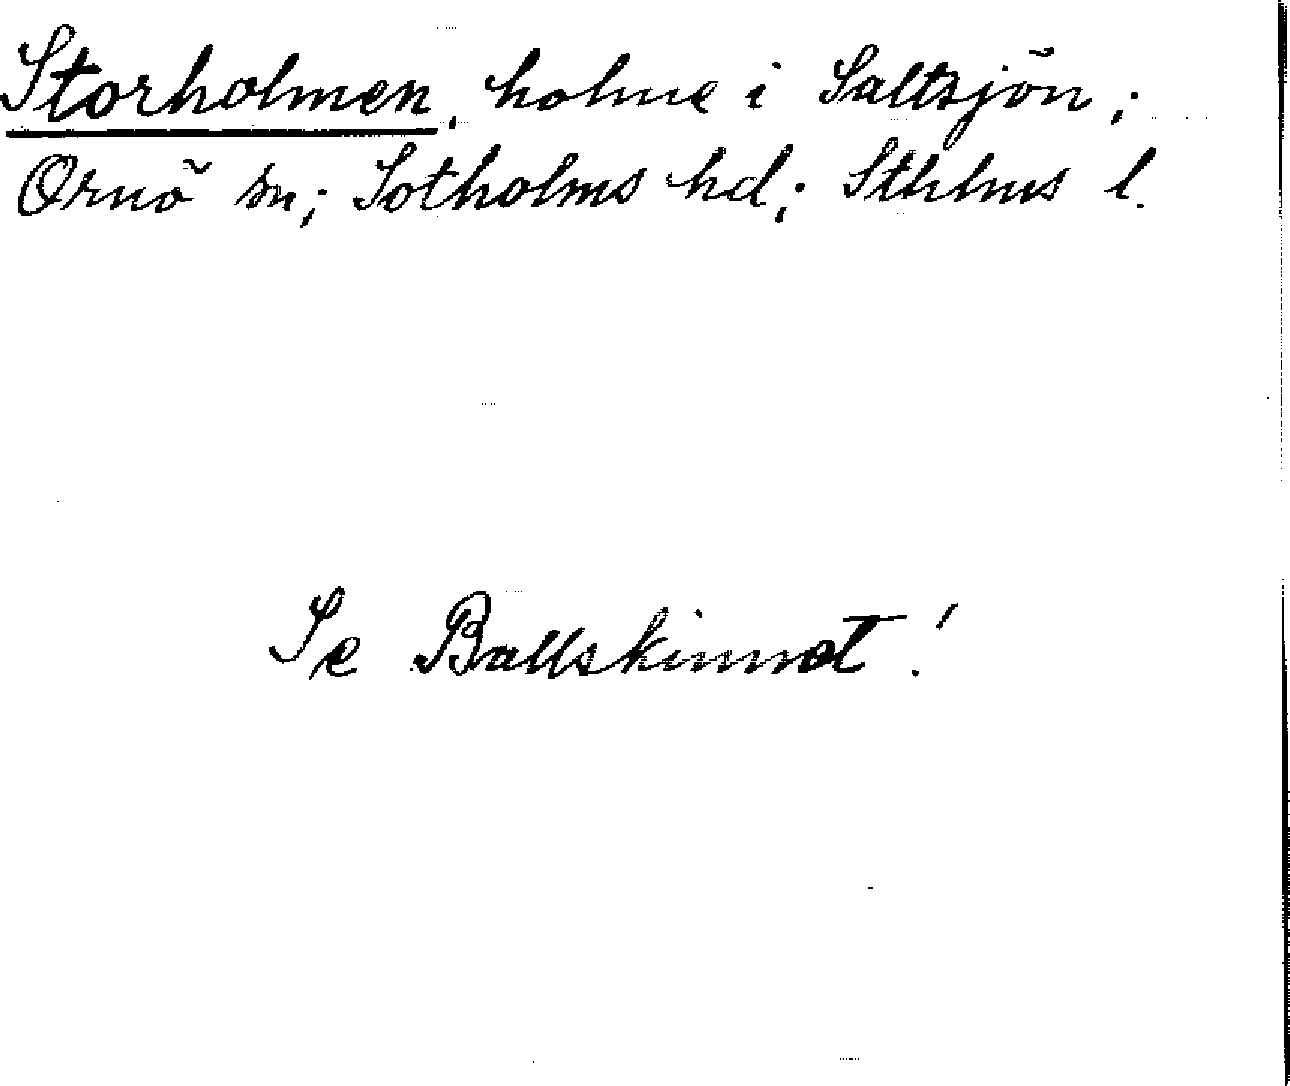 Storholmen, holme i Saltsjön;
Ornö sn; Sotholms hd; Sthlms l.
Se Ballskinnet!